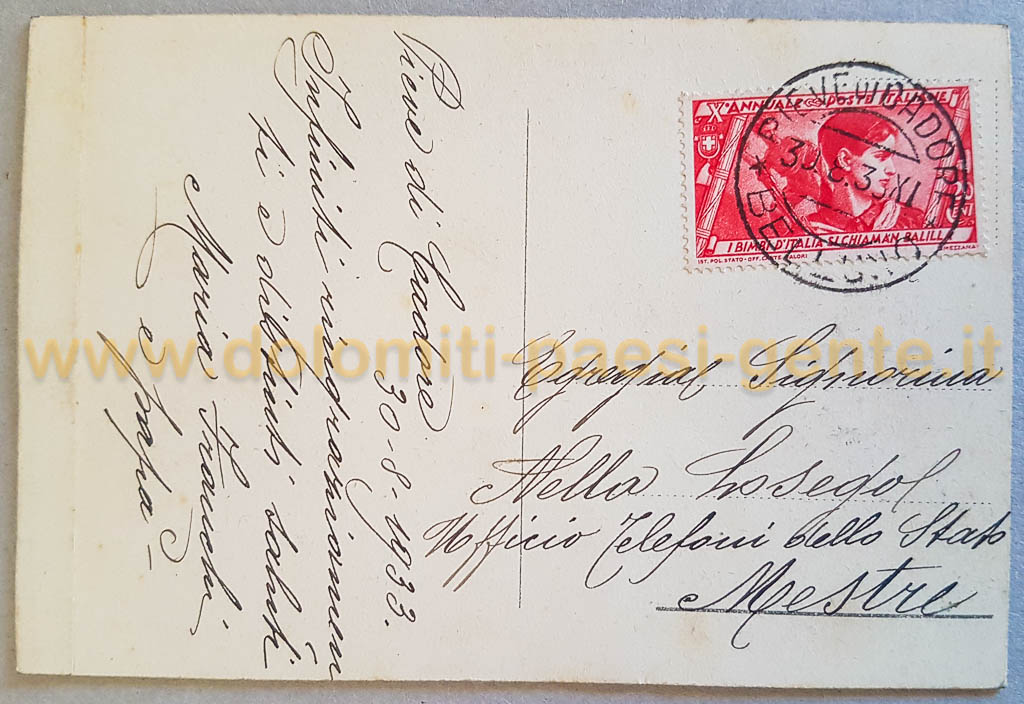 Pieve di Cadore
30-8-1933.
Infiniti ringraziamen
ti e distinti saluti
Maria Franchi
e papà -
PIEVE DI CADORE
30.8.33 XI
* BELLUNO *
Xº ANNUALE POSTE ITALIANE
I BIMBI D'ITALIA SI CHIAMAN BALILLA
IST. POL. STATO - OFF. CARTE VALORI
MEZZANA
Egregia Signorina
Nella Losegol
Ufficio Telefoni dello Stato
Mestre
www.dolomiti-paesi-gente.it